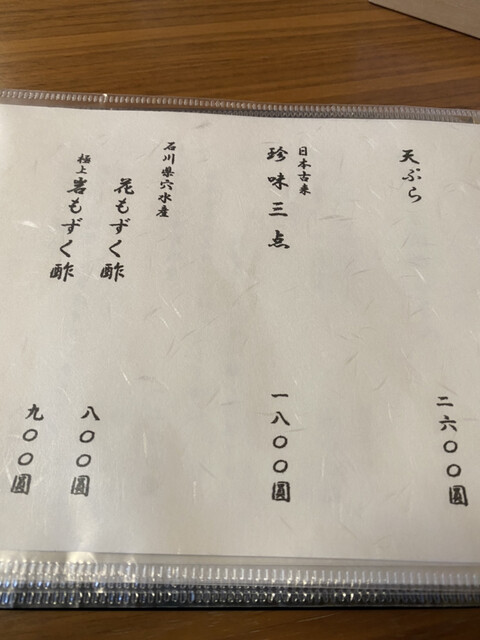 天ぷら
二六〇〇圓
日本古来
珍味三点
一八〇〇圓
石川県穴水産
花もずく酢
八〇〇圓
極上岩もずく酢
九〇〇圓